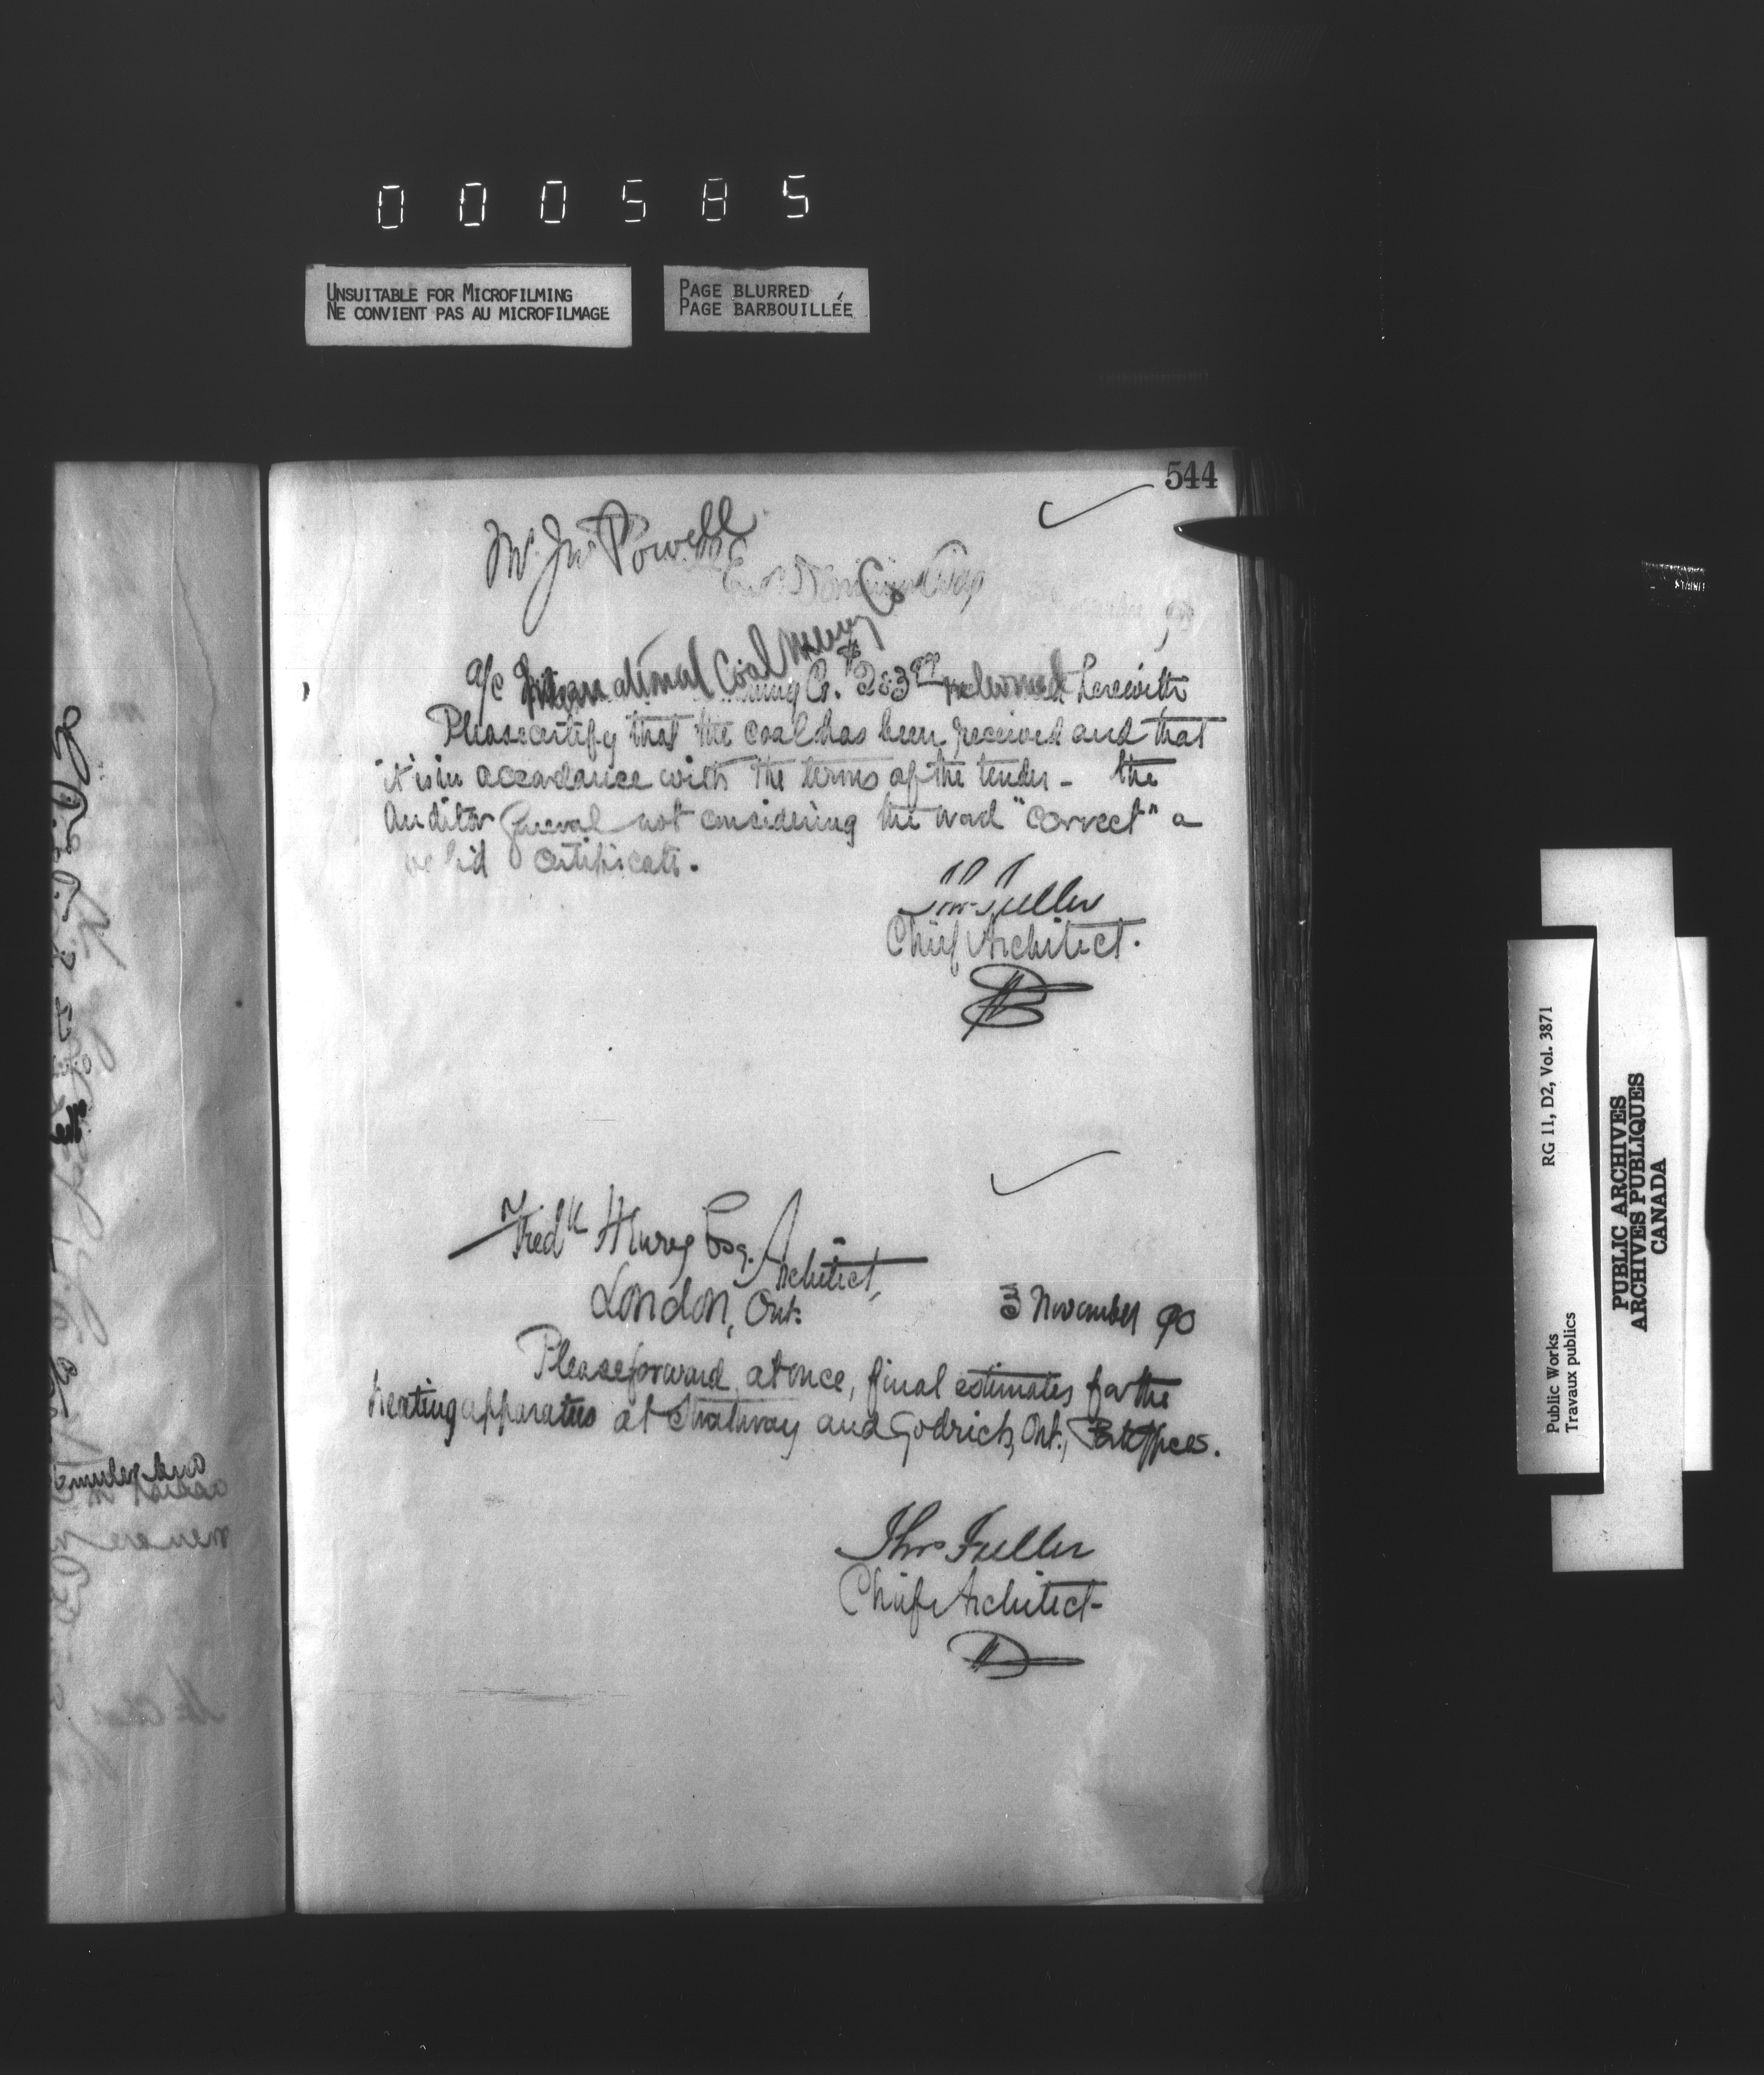 000585
UNSUITABLE FOR MICROFILMING
NE CONVIENT PAS AU MICROFILMAGE
PAGE BLURRED
PAGE BARBOUILLÉE
544
Mr Jno Powell
a/c International Coal Mining Co
Co. $ returned herewith
Please certify that the coal has been received and that
it is in accordance with the terms of the tender - the
Auditor General not considering the word "correct" a
valid certificate.
Thos Fuller
Chief Architect.
Fredk Henry Esq. Architect,
London, Ont.
3 November 90
Please forward, at once, final estimates for the
heating apparatus at Strathroy and Godrich, Ont., Post Offices.
Thos Fuller
Chief Architect
Public Works
Travaux publics
RG 11, D2, Vol. 3871
PUBLIC ARCHIVES
ARCHIVES PUBLIQUES
CANADA